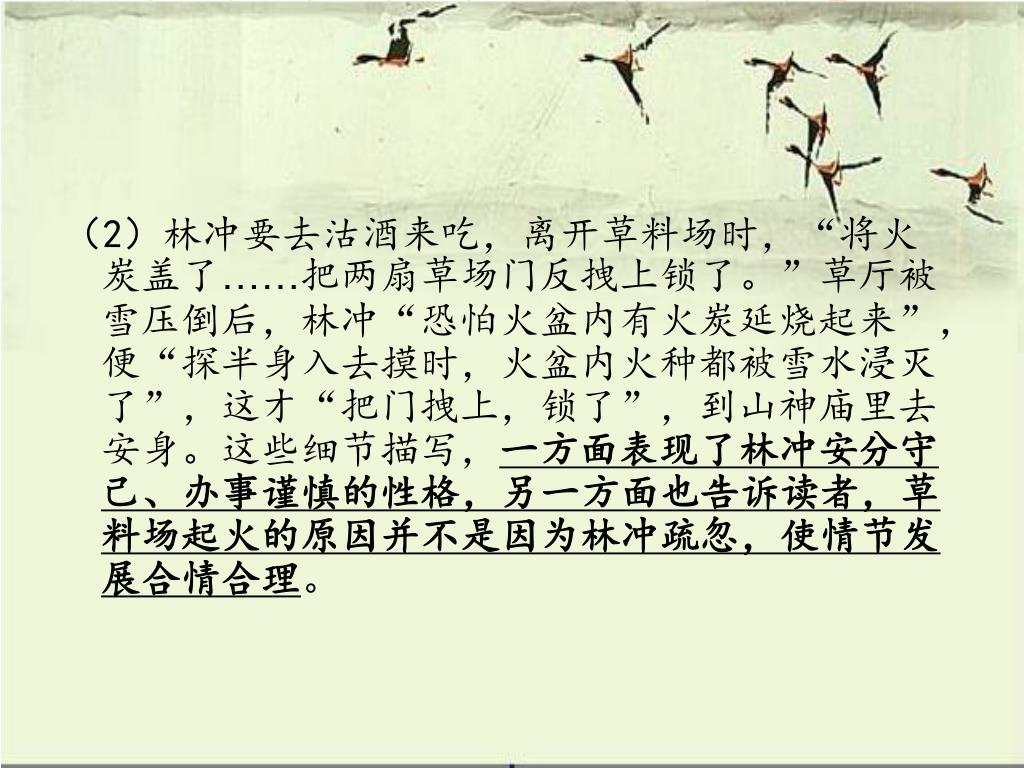 （2）林冲要去沽酒来吃，离开草料场时，“将火
炭盖了……把两扇草场门反拽上锁了。”草厅被
雪压倒后，林冲“恐怕火盆内有火炭延烧起来”，
便“探半身入去摸时，火盆内火种都被雪水浸灭
了”，这才“把门拽上，锁了”，到山神庙里去
安身。这些细节描写，一方面表现了林冲安分守
己、办事谨慎的性格，另一方面也告诉读者，草
料场起火的原因并不是因为林冲疏忽，使情节发
展合情合理。